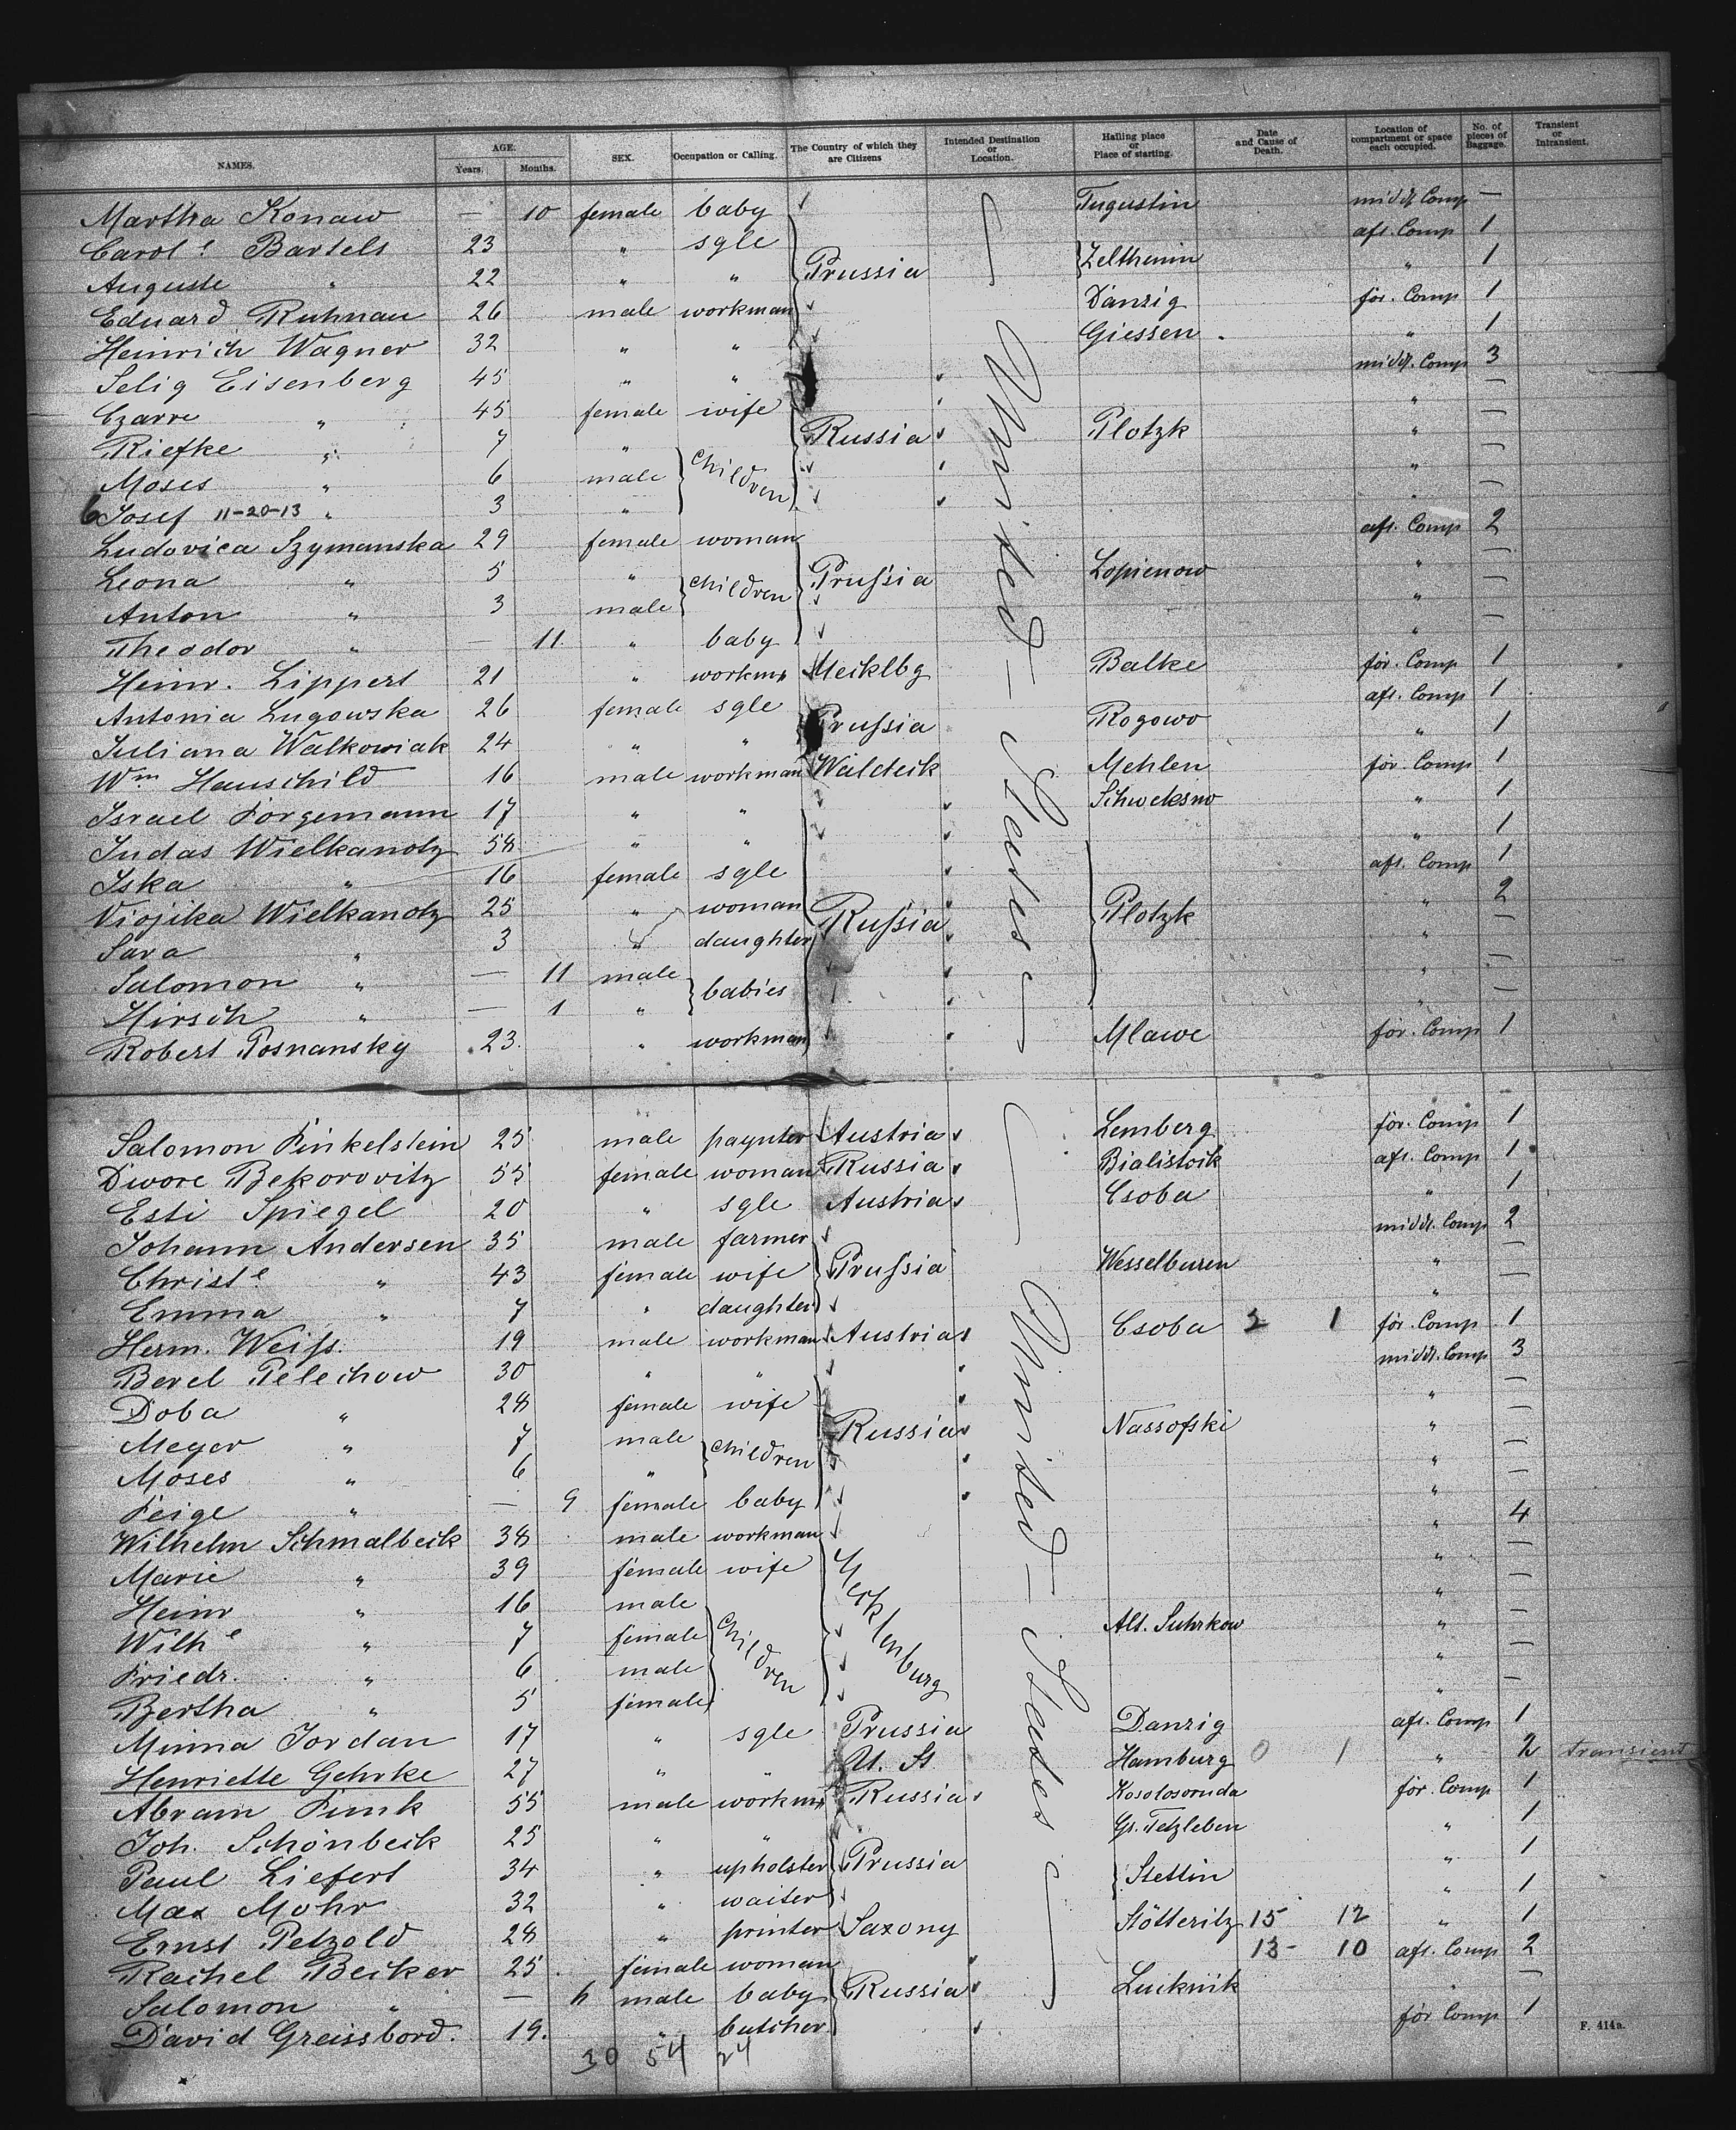 NAMES. AGE. Years. Months. SEX. Occupation or Calling. The Country of which they are Citizens Intended Destination or Location. Hailing place or Place of starting. Date and Cause of Death. Location of compartment or space each occupied. No. of pieces of Baggage. Transient or Intransient.
Martha Konaw — 10 female baby Tugustin middl. Comp —
Carol.e Bartels 23 " sgle aft. Comp 1
Auguste " 22 " " Prussia Zelthenin " 1
Eduard Ruhnau 26 male workman Danzig for. Comp 1
Heinrich Wagner 32 " " Giessen . " 1
Selig Eisenberg 45 " " middl. Comp 3
Czarre " 45 female wife " —
Riefke " 7 " Russia Plotzk " —
Moses " 6 male children " —
6 Josef 11-20-13 " 3 " " —
Ludovica Szymanska 29 female woman aft. Comp 2
Leona " 5 " children Prussia Lopienow " —
Anton " 3 male " —
Theodor " — 11. " baby " —
Heinr. Lippert 21 " workmn Mecklbg Balke for. Comp 1
Antonia Lugowska 26 female sgle aft. Comp 1
Juliana Walkowiak 24 " " Prussia Rogowo " 1
Wm Hauschild 16 male workman Waldeck Mehlen for. Comp 1
Israel Forgemann 17 " " Schweksno " 1
Judas Wielkanotz 58 " " " 1
Iska " 16 female sgle aft. Comp 1
Viojika Wielkanotz 25 " woman Russia Plotzk " 2
Sara " 3 " daughter " —
Salomon " — 11 male babies " —
Hirsch " — 1 " " —
Robert Posnansky 23. " workman Mlawe for. Comp 1
Salomon Finkelstein 25 male paynter Austria Lemberg for. Comp 1
Dwore Bekorovitz 55 female woman Russia Bialistock aft. Comp 1
Esti Spiegel 20 " sgle Austria Csoba " 1
Johann Andersen 35 male farmer middl. Comp 2
Christe " 43 female wife Prussia Wesselburen " —
Emma " 7 " daughter " —
Herm. Weiss. 19 male workman Austria Csoba 2 1 for. Comp 1
Berel Pelechow 30 " " middl. Comp 3
Doba " 28 female wife " —
Meyer " 7 male children Russia Nassofski " —
Moses " 6 " " —
Feige " — 9 female baby " —
Wilhelm Schmalbeck 38 male workman " 4
Marie " 39 female wife Mecklenburg " —
Heinr " 16 male children " —
Wilhe " 7 female Alt. Suhrkow " —
Friedr. " 6 male " —
Bertha " 5 female " —
Minna Jordan 17 " sgle Prussia Danzig aft. Comp 1
Henriette Gehrke 27 " " U. St Hamburg 0 1 " 2 transient
Abram Funk 55 male workmn Russia Kosolosoruda for. Comp 1
Joh. Schönbeck 25 " " Gr. Tetzleben " 1
Paul Liefert 34 " upholster Prussia Stettin " 1
Max Mohr 32 " waiter " 1
Ernst Petzold 28 " printer Saxony Stötteritz 15 12 " 1
Rachel Becker 25 . female woman 13- 10 aft. Comp 2
Salomon " — 6 male baby Russia Luckniik " —
David Greissbord. 19. " butcher for Comp 1
United — States
United — States
30 54 24
F. 414a.